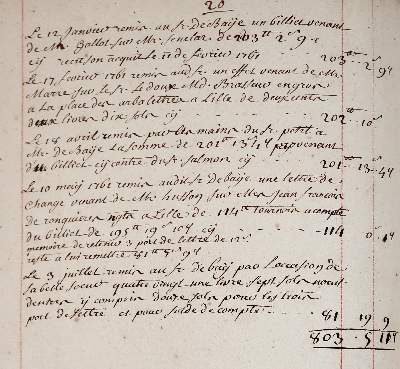 20
Le 12 Janvier remis au Sr. DeBaije un billiet venant
de Mr. Gallot Sur Mr. Senelar de 203tt 2s 9d
cij reçu son acquit le 11 de fevrier 1761 203tt 2 9d
Le 17 fevrier 1761 remis aud. Sr. un effet venant de Mr.
Marre Sur le Sr. Ledoux Md. Brasseur en gros
a La place des arbolettre a Lille de deux cents
deux livres dix sols cij 202tt 10s
Le 18 avril remis par les mains du Sr. petit a
Mr. de Baije La somme de 201tt 13s 4d provenant
du billiet cij contre du Sr. Salmon cij 201tt 13 4d
Le 10 maij 1761 remis audit Sr. de Baije une lettre de
Change venant de Mr. husson Sur Mr. Jean francois
de ronquier a Lille de 114tt tournois a compte
du billiet de 195tt 19s 10d cij 114 0 1d
memoire de retenir 3 port de lettre de 12s
reste a lui remettre 81tt 9d
Le 3 juillet remis au Sr. de baij par Loccasion de
Sa belle Soeur quatre vingt une livre Sept Sols neuf
deniers ij compris douze Sols pour les trois
port de lettre et pour solde de compte 81 19 9
803 5 11d